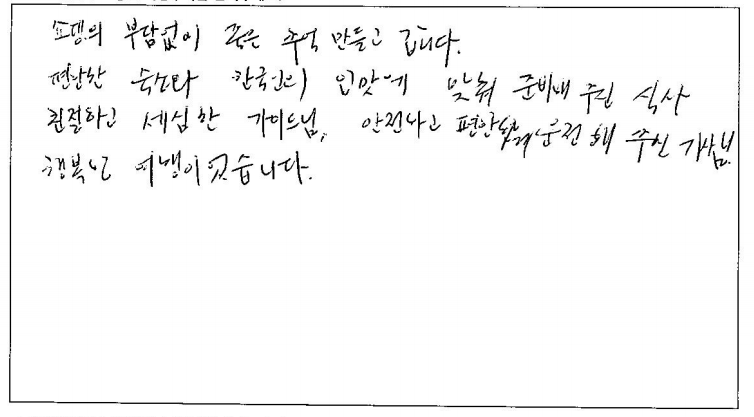 쇼핑의 부담없이 좋은 추억 만들고 갑니다.
편안한 숙소와 한국인의 입맛에 맞춰 준비해 주신 식사
친절하고 세심한 가이드님, 안전하고 편안하게 운전해 주신 기사님.
행복한 여행이였습니다.